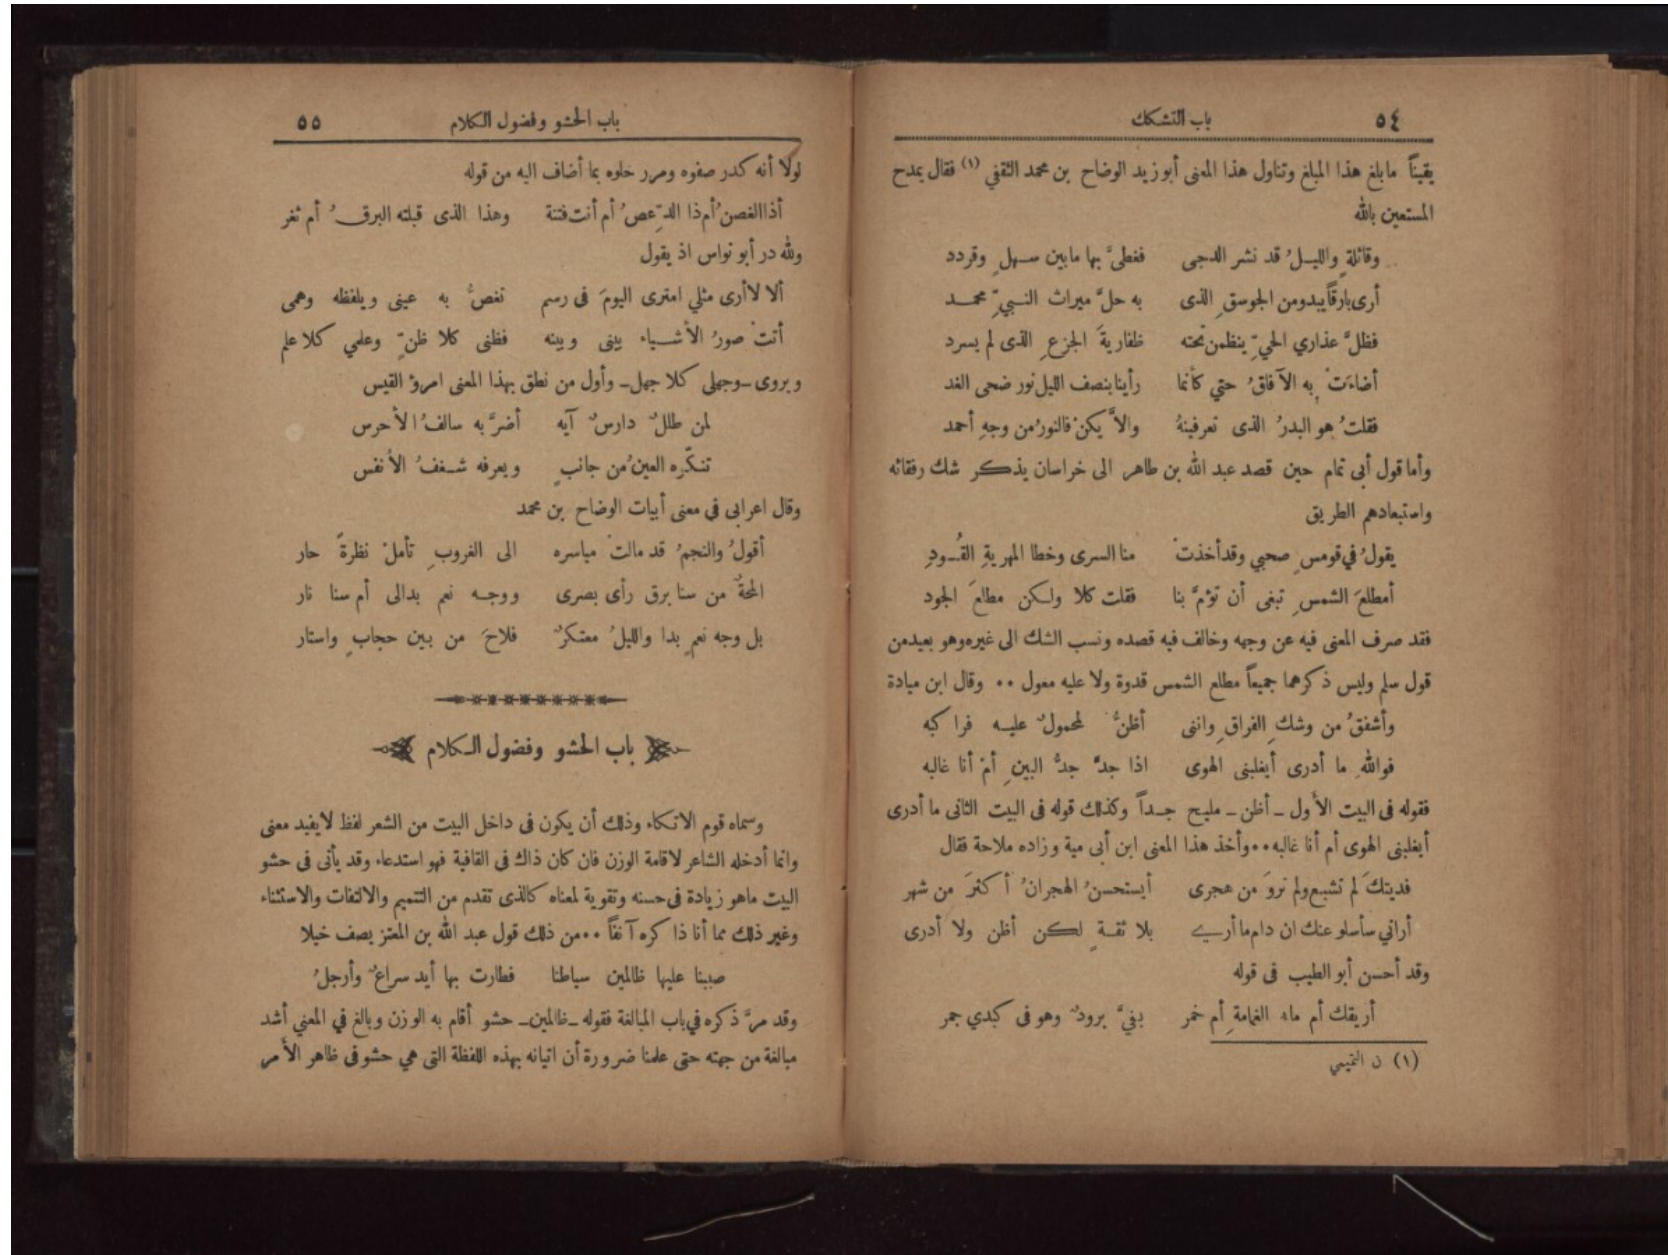 ٥٤ باب التشكك
يقيناً مابلغ هذا المبلغ وتناول هذا المعنى أبو زيد الوضاح بن محمد الثقفي (١) فقال يمدح
المستعين بالله
وقائلةٍ والليـلُ قد نشر الدجى فغطىَّ بها مابين سـهلٍ وقردد
أرى بارقاً يبدو من الجوسقِ الذى به حلَّ ميراث النـبيِّ محمـد
فظلَّ عذاري الحيِّ ينظمن تحته ظفاريةَ الجزعِ الذى لم يسرد
أضاءَتْ بِه الآفاقُ حتي كأنما رأينا بنصف الليل نور ضحى الغد
فقلتُ هو البدرُ الذى تعرفينهُ والاَّ يكنْ فالنورُ من وجهِ أحمد
وأما قول أبى تمام حين قصد عبد الله بن طاهر الى خراسان يذكر شك رفقائه
واستبعادهم الطريق
يقولُ في قومسٍ صحبي وقد أخذتْ منا السرى وخطا المهريةِ القُـودِ
أمطلعَ الشمسِ تبغى أن تؤمَّ بنا فقلت كلا ولكن مطلعَ الجود
فقد صرف المعنى فيه عن وجهه وخالف فيه قصده ونسب الشك الى غيره وهو بعيد من
قول سلم وليس ذكرهما جميعاً مطلع الشمس قدوة ولا عليه معول ٠٠ وقال ابن ميادة
وأشفقُ من وشكِ الفراقِ وانني أظنُّ لمحمولٌ عليـه فراكبه
فواللهِ ما أدرى أيغلبنى الهوى اذا جدَّ جدُّ البينِ أمْ أنا غالبه
فقوله فى البيت الأول ـ أظن ـ مليح جـداً وكذلك قوله فى البيت الثانى ما أدرى
أيغلبنى الهوى أم أنا غالبه٠٠وأخذ هذا المعنى ابن أبى مية وزاده ملاحة فقال
فديتكَ لم تشبع ولم تروَ من هجرى أيستحسنُ الهجرانُ أكثرَ من شهر
أراني سأسلو عنك ان دام ما أرى بلا ثقـةٍ لكن أظن ولا أدرى
وقد أحسن أبو الطيب فى قوله
أريقك أم ماء الغمامةِ أم خمر بفيَّ برودٌ وهو فى كبدي جمر
(١) ن التميمي
باب الحشو وفضول الكلام ٥٥
لولا أنه كدر صفوه ومرر حلوه بما أضاف اليه من قوله
أذا الغصنُ أم ذا الدِّعصُ أم أنت فتنة وهذا الذى قبلته البرقُ أم ثغر
ولله در أبو نواس اذ يقول
ألا لا أرى مثلي امترى اليومَ فى رسم تغصُّ به عينى ويلفظه وهمى
أتتْ صورُ الأشـياء بينى وبينه فظنى كلا ظنٍّ وعلمي كلا علم
ويروى ـ وجهلى كلا جهل ـ وأول من نطق بهذا المعنى امرؤ القيس
لمن طللٌ دارسٌ آيه أضرَّ به سالفُ الأحرس
تنكّره العينُ من جانبٍ ويعرفه شـغفُ الأنفس
وقال اعرابى فى معنى أبيات الوضاح بن محمد
أقولُ والنجمُ قد مالتْ مياسره الى الغروبِ تأملْ نظرةً حار
ألمحةٌ من سنا برق رأى بصرى ووجـه نعم بدالى أم سنا نار
بل وجه نعمٍ بدا والليلُ معتكرٌ فلاحَ من بين حجابٍ واستار
باب الحشو وفضول الكلام
وسماه قوم الاتكاء وذلك أن يكون فى داخل البيت من الشعر لفظ لايفيد معنى
وانما أدخله الشاعر لاقامة الوزن فان كان ذاك فى القافية فهو استدعاء وقد يأتى فى حشو
البيت ماهو زيادة فى حسنه وتقوية لمعناه كالذى تقدم من التتميم والالتفات والاستثناء
وغير ذلك مما أنا ذاكره آنفاً ٠٠من ذلك قول عبد الله بن المعتز يصف خيلا
صببنا عليها ظالمين سياطنا فطارت بها أيد سراعٌ وأرجلُ
وقد مرَّ ذكره في باب المبالغة فقوله ـ ظالمين ـ حشو أقام به الوزن وبالغ في المعني أشد
مبالغة من جهته حتى علمنا ضرورة أن اتيانه بهذه اللفظة التى هي حشو فى ظاهر الأمر